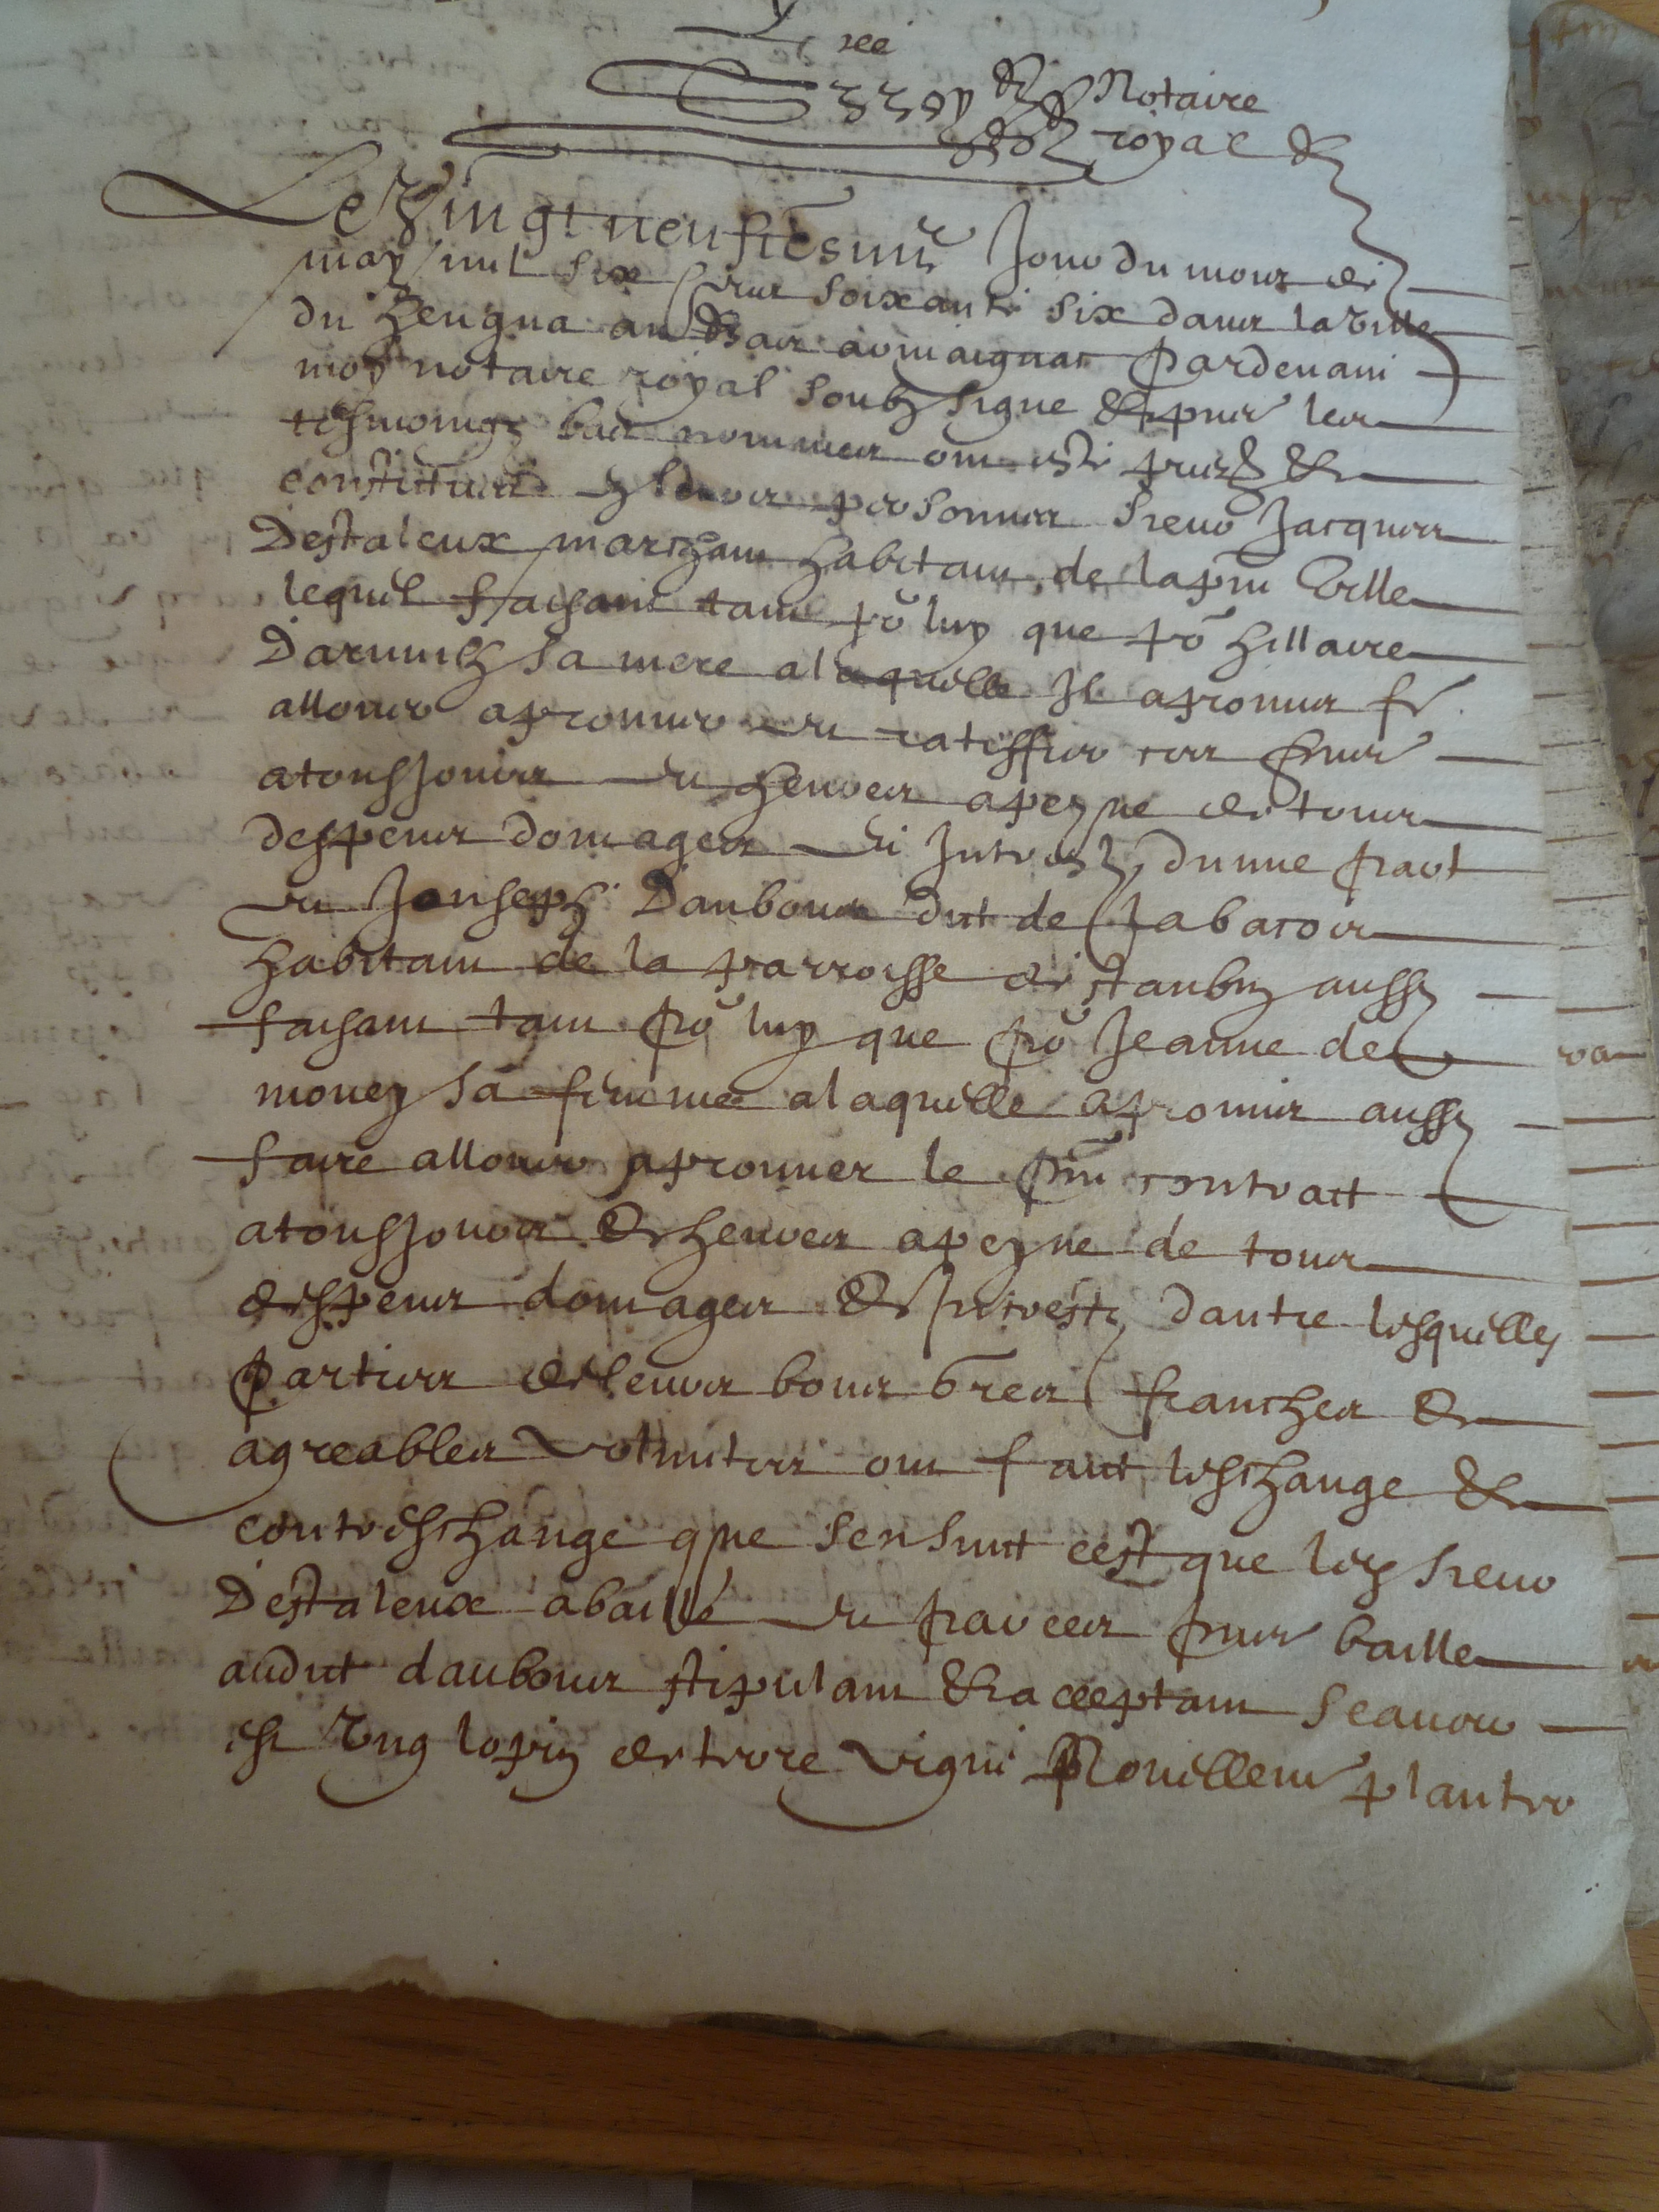 Notaire
royal
Le Vingt neufiesme Jour du mois de
may mil six cens soixante six dans la ville
du heugna au bas armaignac pardevant
moy notaire royal soubzsigne & pnts les
tesmoings bas nommes ont este pntz &
constitues personnes sieur Jacques
Destaleux marchant habitant de la pnt Ville
lequel faisant tant po luy que po hillaire
sa mere a laquelle Il a promis fe
allouer aprouver et ratiffier ces pntes
a tousjours et heures a peyne de tous
despens domages et Intrestz, dunne part
et Jouseph Daubous dit de
habitant de la parroisse destaubin aussy
faisant tant po luy que po Jeanne de
mouey sa femme a laquelle a promis aussy
faire allouer aprouver le pnt contract
a tousjours & heures a peyne de tous
despens domages & Intrestz dautre lesquelles
parties de leurs bons gres franches &
agreables voluntes ont faict leschange &
contreschange que sensuit cest que led sieur
Destaleux a baille et par ces pntes baille
audit daubous stipulant & acceptant scavoir
est Ung lopin de terre vigne plantee